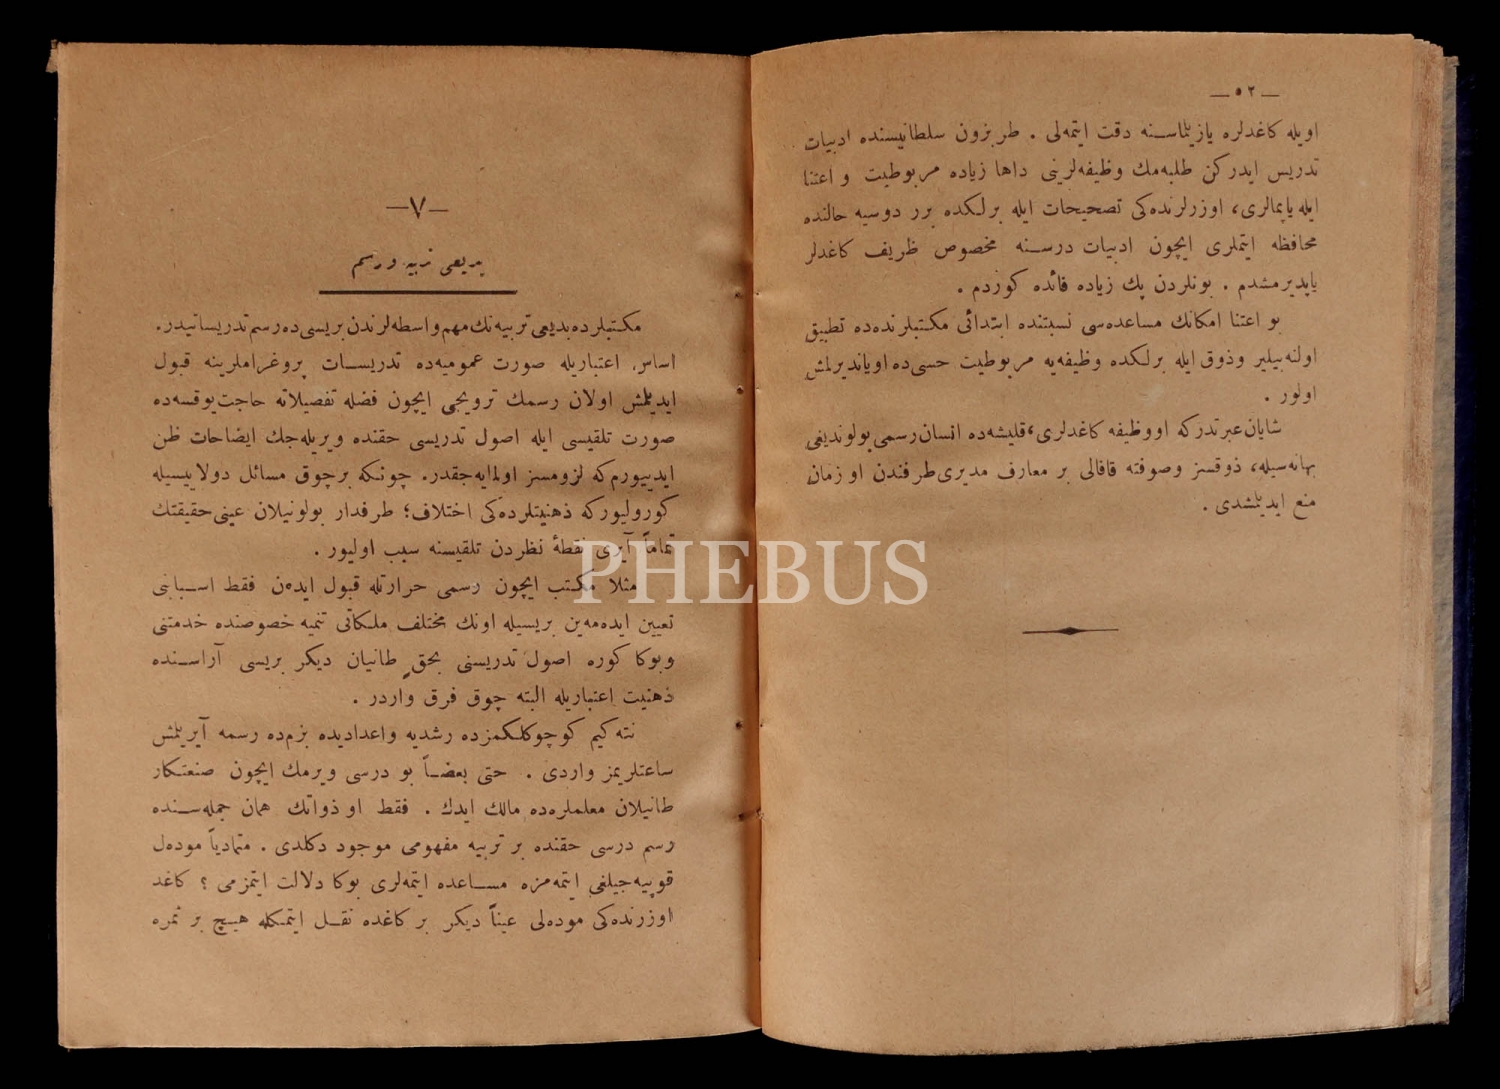 — ٥٢ —
اویله كاغدلره یازیلماسنه دقت ایتمه‌لی . طربزون سلطانیسنده ادبیات
تدریس ایدركن طلبه‌مك وظیفه‌لرینی داها زیاده مربوطیت و اعتنا
ایله یاپمالری، اوزرلرنده‌كی تصحیحات ایله برلكده برر دوسیه حالنده
محافظه ایتملری ایچون ادبیات درسنه مخصوص ظریف كاغدلر
یاپدیرمشدم . بونلردن پك زیاده فائده كوردم .
بو اعتنا امكانك مساعده‌سی نسبتنده ابتدائی مكتبلرنده‌ده تطبیق
اولنه‌بیلیر وذوق ایله برلكده وظیفه‌یه مربوطیت حسی‌ده اویاندیرلمش
اولور .
شایان‌عبرتدركه اووظیفه كاغدلری، قلیشه‌ده انسان‌رسمی بولوندیغی
بهانه‌سیله، ذوقسز وصوفته قافالی بر معارف مدیری‌طرفندن او زمان
منع ایدیلمشدی .
—٧—
بدیعی تربیه و رسم
مكتبلرده بدیعی تربیه‌نك مهم واسطه‌لرندن بریسی‌ده رسم تدریساتیدر.
اساس اعتباریله صورت عمومیه‌ده تدریسات پروغراملرینه قبول
ایدیلمش اولان رسمك ترویجی ایچون فضله تفصیلاته حاجت یوقسه‌ده
صورت تلقیسی ایله اصول تدریسی حقنده ویریله‌جك ایضاحات ظن
ایدییورم كه لزومسز اولمایه‌جقدر. چونكه برچوق مسائل دولاییسیله
كورولیوركه ذهنیتلرده‌كی اختلاف؛ طرفدار بولونیلان عینی حقیقتك
تماماً آیری نقطهٔ نظردن تلقیسنه سبب اولیور .
مثلا مكتب ایچون رسمی حرارتله قبول ایده‌ن فقط اسبابنی
تعیین ایده‌مه‌ین بریسیله اونك مختلف ملكاتی تنمیه خصوصنده خدمتنی
وبوكا كوره اصول تدریسنی بحق طانیان دیكر بریسی آراسنده
ذهنیت اعتباریله البته چوق فرق واردر .
نته‌كیم كوچوكلكمزده رشدیه واعدادیده بزم‌ده رسمه آیریلمش
ساعتلریمز واردی . حتی بعضاً بو درسی ویرمك ایچون صنعتكار
طانیلان معلملره‌ده مالك ایدك . فقط او ذواتك همان جمله‌سنده
رسم درسی حقنده بر تربیه مفهومی موجود دكلدی . متمادیاً موده‌ل
قوپیه‌جیلغی ایتمه‌مزه مساعده ایتمه‌لری بوكا دلالت ایتمزمی ؟ كاغد
اوزرنده‌كی موده‌لی عیناً دیكر بر كاغده نقل ایتمكله هیچ بر ثمره
PHEBUS